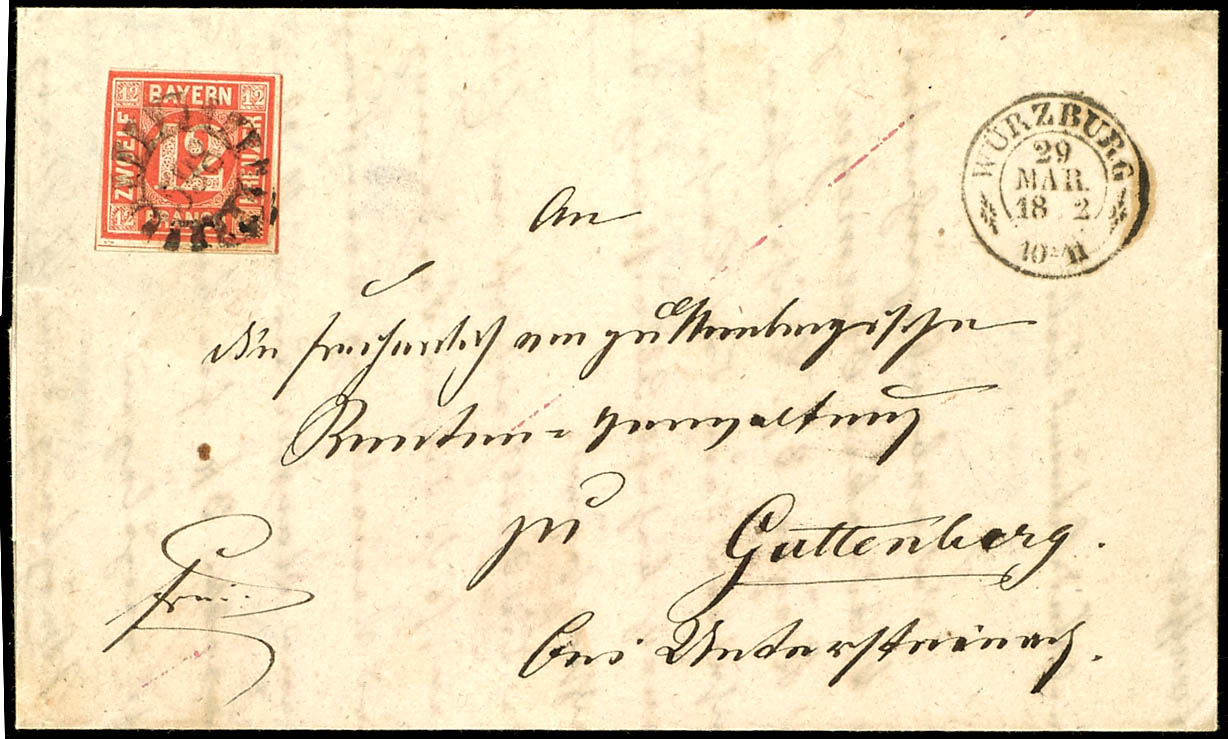 12 BAYERN 12
ZWOELF
12
KREUZER
12 FRANCO
WÜRZBURG
29
MAR.
18 2
10-11
An
die freiherrlich von guttenbergische
Renten-Verwaltung
zu Guttenberg.
frei.
bei Untersteinach.